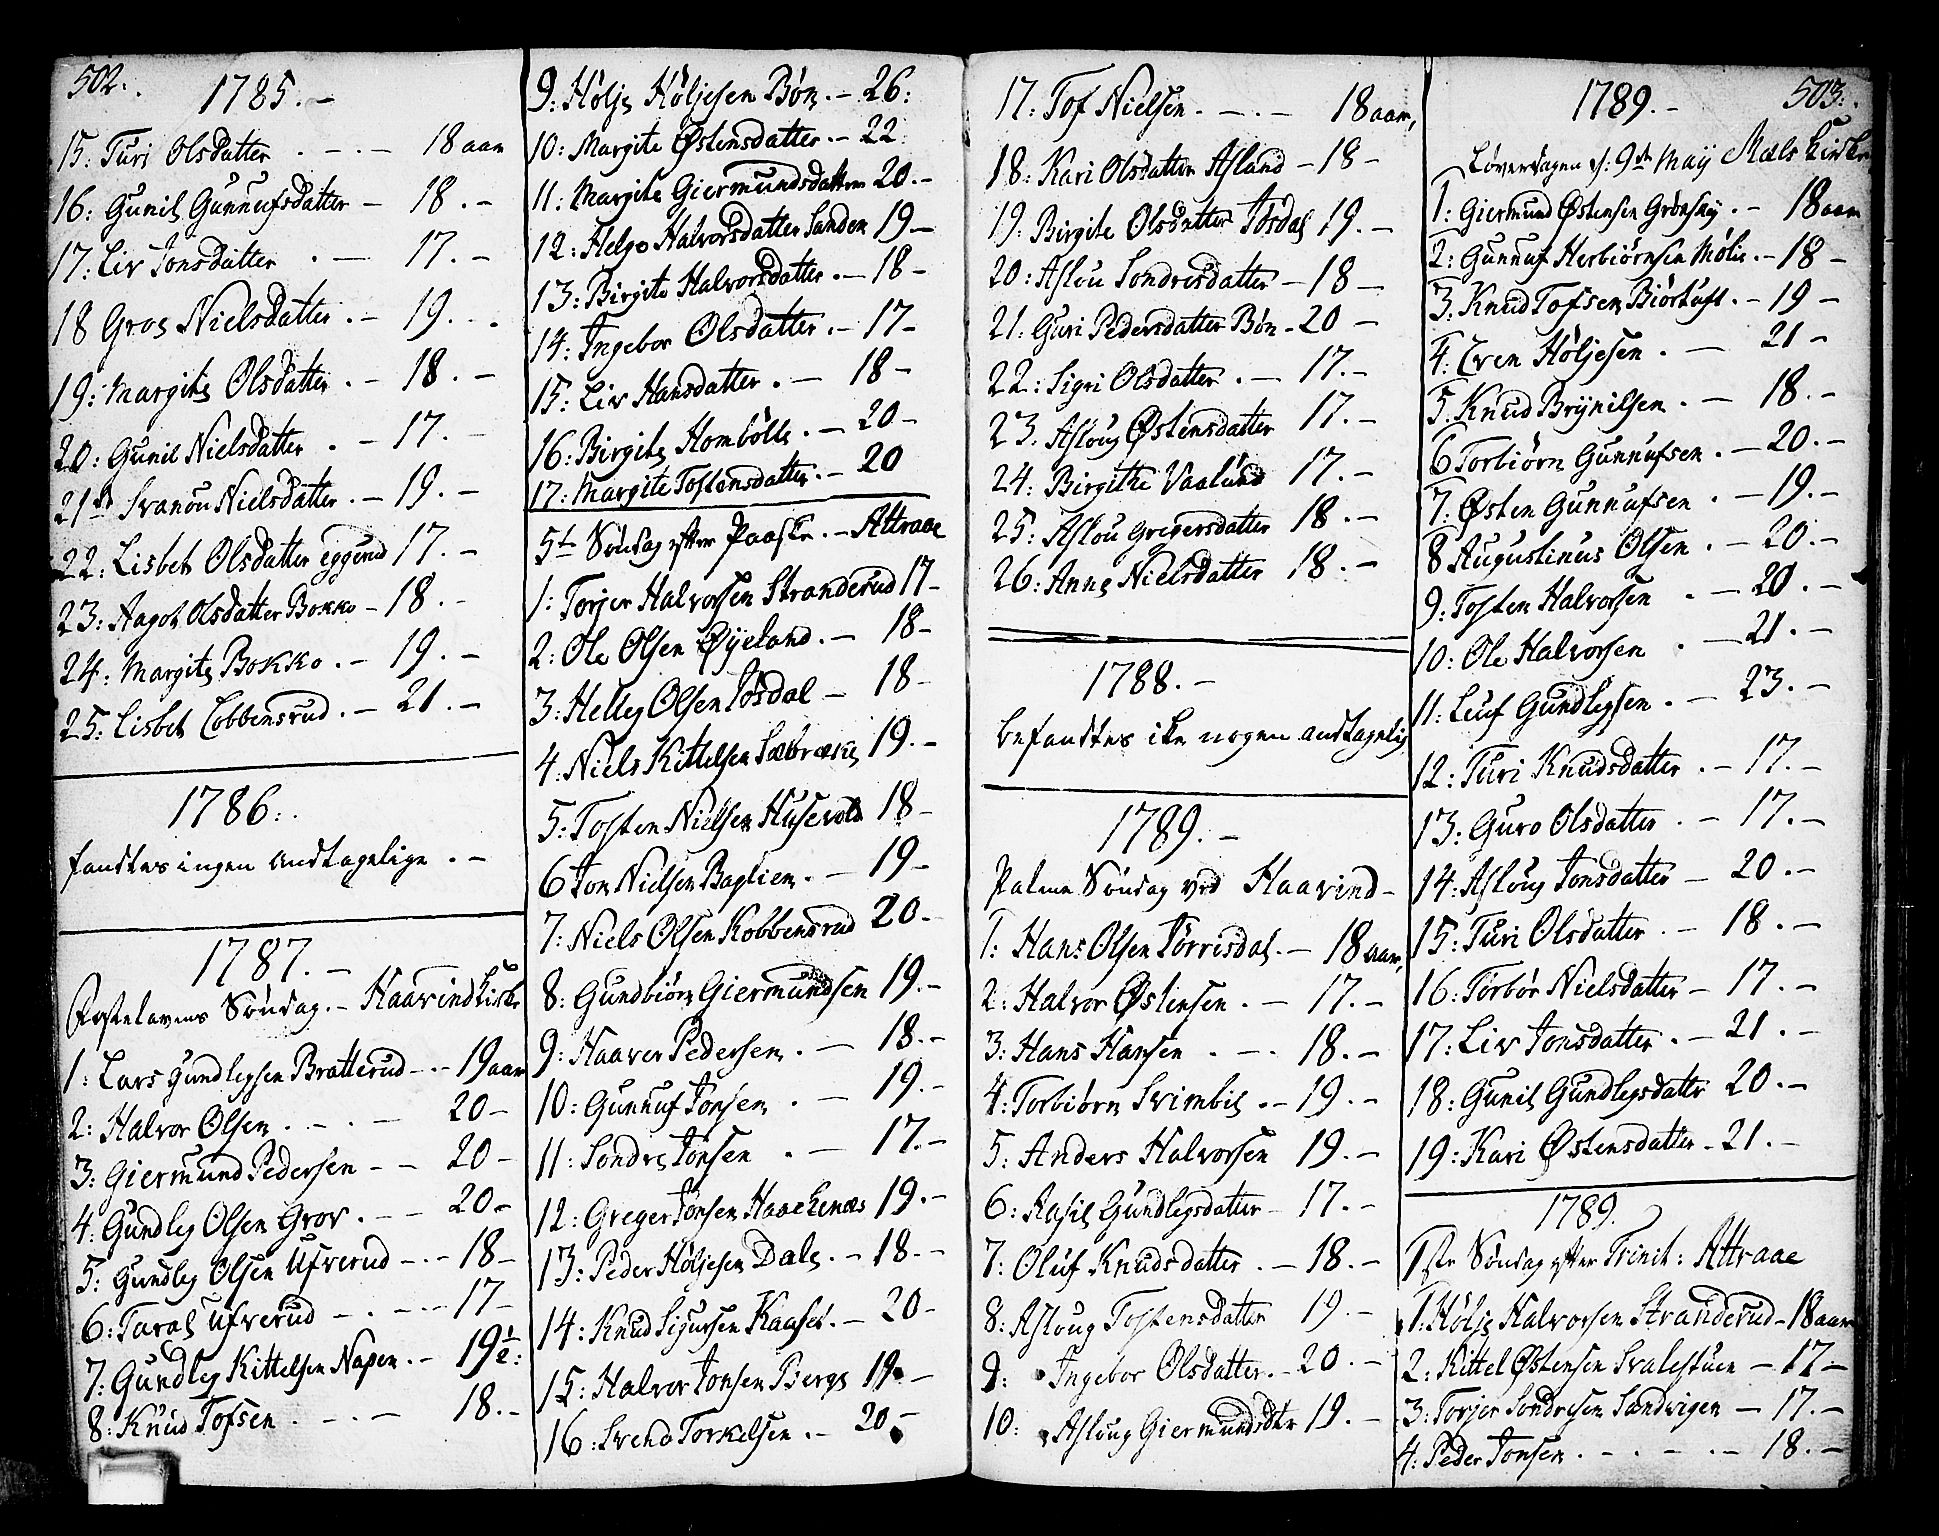 502.
1785.-
15: Turi Olsdatter . - . - 18 aar
16: Gunil Gunnufsdatter - 18.-
17: Liv Jonsdatter . - 17.-
18 Groe Nielsdatter . - 19.-
19: Margite Olsdatter . - 18.-
20: Gunil Nielsdatter . - 17.-
21: Svanou Nielsdatter . - 19.-
22: Lisbet Olsdatter eggerud 17.-
23: Aagot Olsdatter Bokko - 18.-
24: Margite Bokko . - 19.-
25: Lisbet Cobbensrud . - 21.-
1786:.
fandtes ingen andtagelige . -
1787.-
Fastelavens Søndag. - Haavind Kirke
1: Lars Gundlegsen Bratterud - . 19 aar
2: Halvor Olsen . - . - 20-
3: Giermund Pedersen - - 20-
4: Gundleg Olsen Grov . - - 20-
5: Gundleg Olsen Ufverud - . - 18-
6: Taral Ufverud - . - - 17-
7: Gundleg Kittelsen Napen . - 19½:
8: Knud Tofsen . - . - 18.-
9: Hølje Høljesen Bøn . - 26:
10: Margite Østensdatter . - 22:
11: Margite Giermundsdatter 20.-
12: Helge Halvorsdatter Sanden 19-
13: Birgite Halvorsdatter . - 18-
14: Ingebor Olsdatter . - 17-
15: Liv Hansdatter . - 18-
16: Birgite Hombølle . - 20-
17: Margite Tostensdatter . - 20
5te Søndag efter Paaske . - Attraae
1: Torjer Halvorsen Stranderud 17-
2: Ole Olsen Øyeland . - 18-
3: Helleg Olsen Jøsdal - 18-
4: Niels Kittelsen Sæbrække 19.-
5: Tosten Nielsen Husevold 18-
6 Jon Nielsen Baglien . - 19-
7: Niels Olsen Kobbensrud 20-
8: Gundbiørn Giermundsen 19.-
9: Haaver Pedersen . - 18.-
10: Gunnuf Jonsen . - 19.-
11: Sondre Jonsen . - 17.-
12: Greger Jonsen Haachenæs 19.-
13: Peder Høljesen Dale . - 18.-
14: Knud Sigursen Kaaset . - 20-
15: Halvor Jonsen Berge 19.-
16: Svend Torkelsen . - 20-
17: Tof Nielsen . - . - 18 aar,
18: Kari Olsdatter Asland - 18-
19: Birgite Olsdatter Jøsdal 19.-
20: Aslou Sondresdatter - 18-
21: Guri Pedersdatter Bøn - 20-
22: Sigri Olsdatter . - 17.-
23. Asloug Østensdatter 17.-
24: Birgithe Vaalund 17.-
25: Aslou Gregersdatter 18.-
26: Anne Nielsdatter 18.-
1788.-
befandtes ike nogen andtagelig
1789.-
Palme Søndag ved Haavind-
1: Hans Olsen Tørrisdal . - 18 aar,
2: Halvor Østensen . - 17.-
3: Hans Hansen . - . 18.-
4: Torbiørn Svimbil . - 19.-
5: Anders Halvorsen 19.-
6: Aasil Gundlegsdatter - 17.-
7: Oluf Knudsdatter . - 18.-
8: Asloug Tostensdatter 19.-
9: Ingebor Olsdatter . - 20.-
10: Asloug Giermundsdtr 19.-
1789.-
503.
Løverdagen d: 9de May Mæls Kirke
1: Giermund Østensen Grønsky . - 18 aar
2: Gunnuf Herbiørnsen Mølie . - 18-
3. Knud Tofsen Biørtuft . - 19-
4: Even Høljesen . - 21-
5. Knud Brynilsen . - 18.-
6 Torbiørn Gunnufsen . - 20.-
7. Østen Gunnufsen . - 19.-
8 Augustinus Olsen . - 20.-
9: Tosten Halvorsen . - 20.-
10: Ole Halvorsen . - 21.-
11: Leuf Gundlegsen . - 23.-
12: Turi Knudsdatter . - 17.-
13: Guro Olsdatter . - 17.-
14: Asloug Jonsdatter - 20.-
15: Turi Olsdatter . - 18.-
16: Torbør Nielsdatter - 17.-
17: Liv Jonsdatter . - 21.-
18: Gunil Gundlegsdatr 20.-
19: Kari Østensdatter - 21.-
1789.
1ste Søndag efter Trinit: Attraae
1: Hølje Halvorsen Stranderud - 18 aar
2: Kittel Østensen Svalestuen - 17-
3: Torjer Sondresen Sandvigen - 17.-
4: Peder Jonsen . - . - . - 18.-